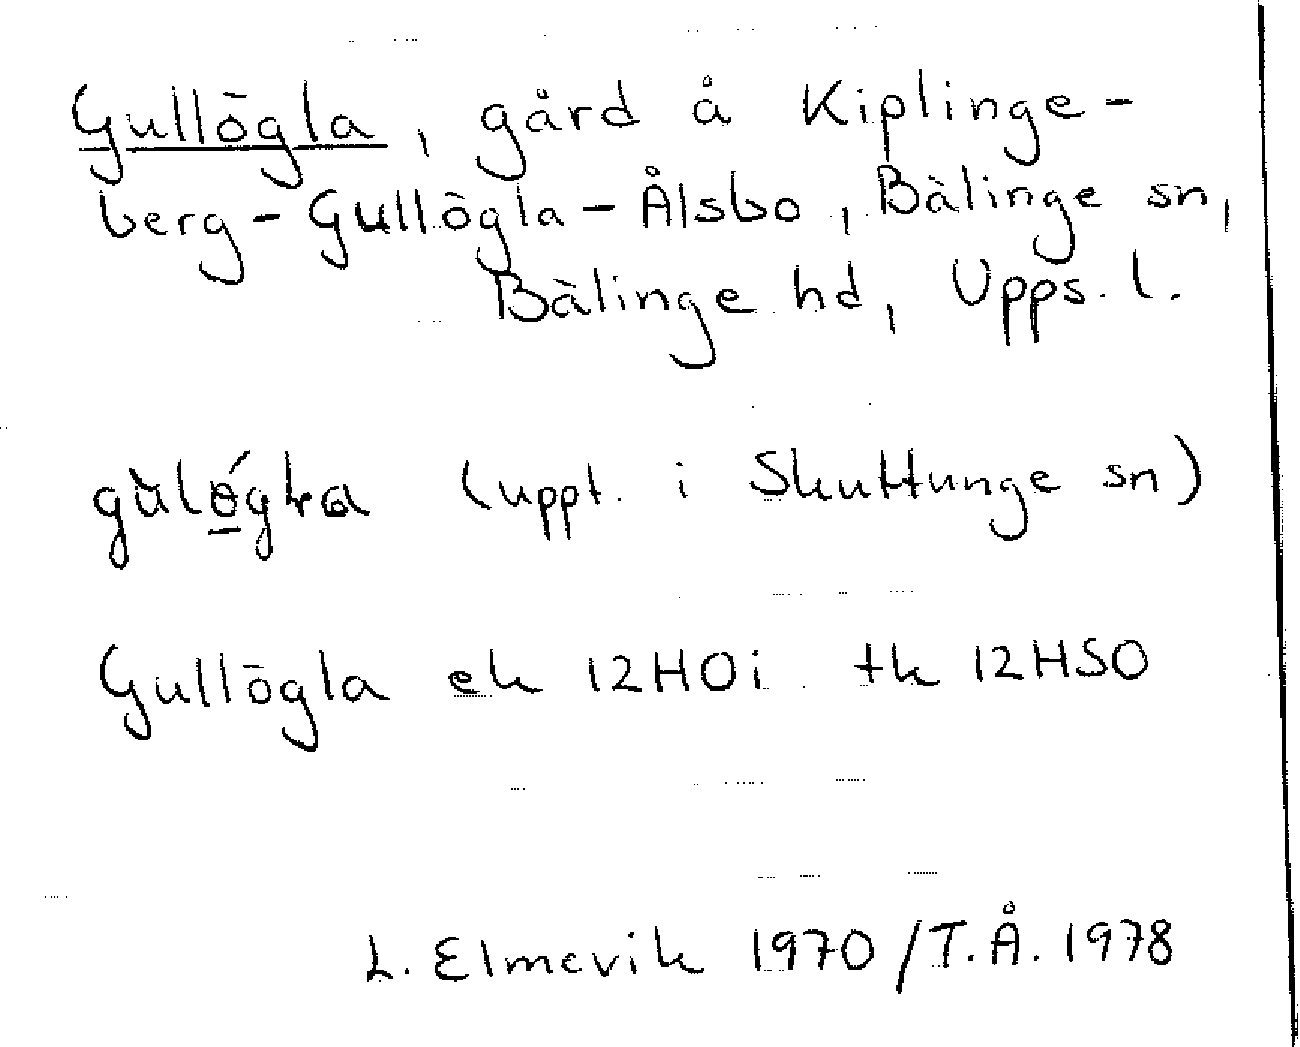 Gullögla, gård å Kiplinge-
berg - Gullögla - Ålsbo, Bälinge sn,
Bälinge hd, Upps. l.
(uppt. i Skuttunge sn)
Gullögla ek 12H0i tk 12HSO
L. Elmevik 1970/T.Å. 1978